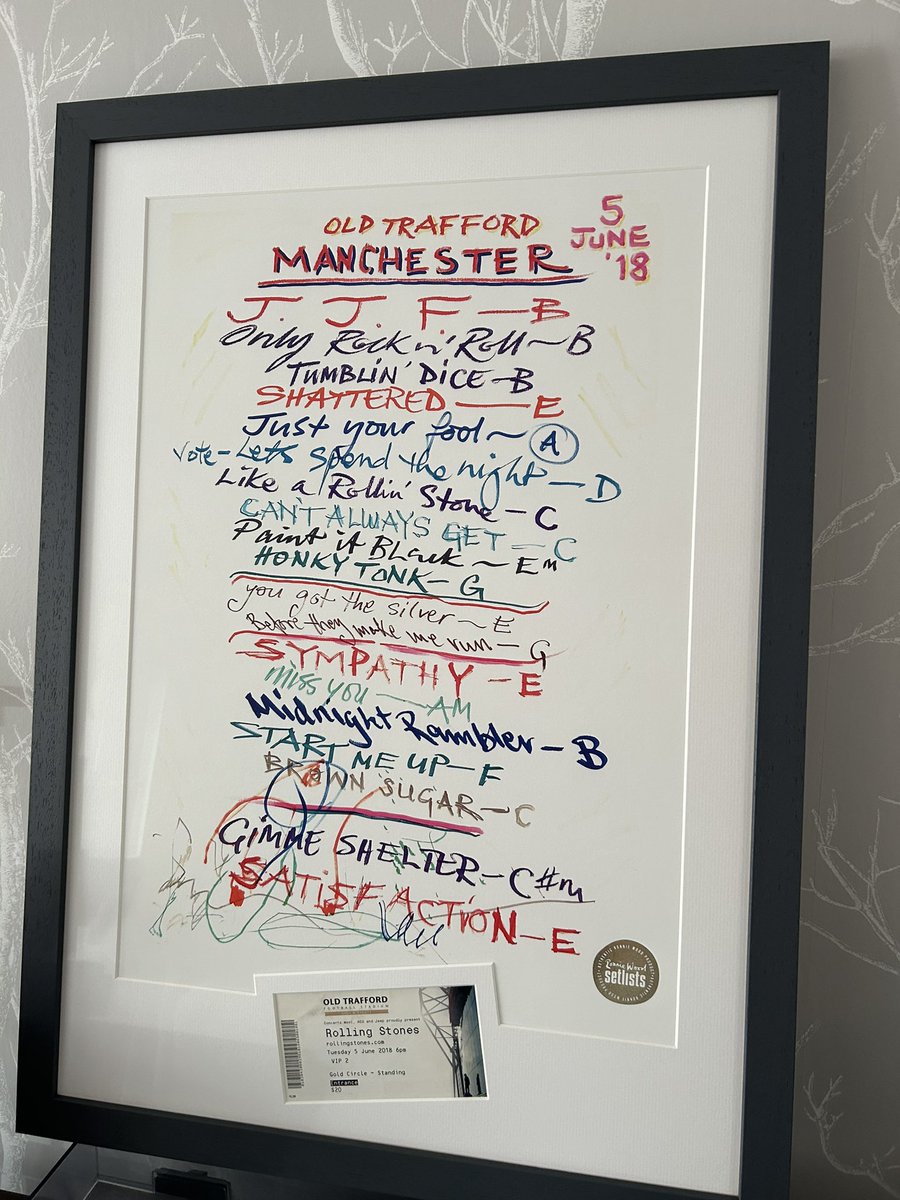 OLD TRAFFORD
MANCHESTER
5
JUNE
'18
J. J. F — B
Only Rock n' Roll ~ B
TUMBLIN' DICE - B
SHATTERED — E
Just your fool ~ A
Vote - Lets spend the night — D
Like a Rollin' Stone - C
CAN'T ALWAYS GET — C
Paint it BLack ~ Em
HONKY TONK - G
you got the silver ~ E
Before they make me run - G
SYMPATHY - E
MISS YOU — AM
Midnight Rambler - B
START ME UP - F
BROWN SUGAR - C
GIMME SHELTER - C#m
SATISFACTION - E
Ronnie Wood
setlists
OLD TRAFFORD
FOOTBALL STADIUM
Concerts West, AEG and Jeep proudly present
Rolling Stones
rollingstones.com
Tuesday 5 June 2018 6pm
VIP 2
Gold Circle - Standing
Entrance